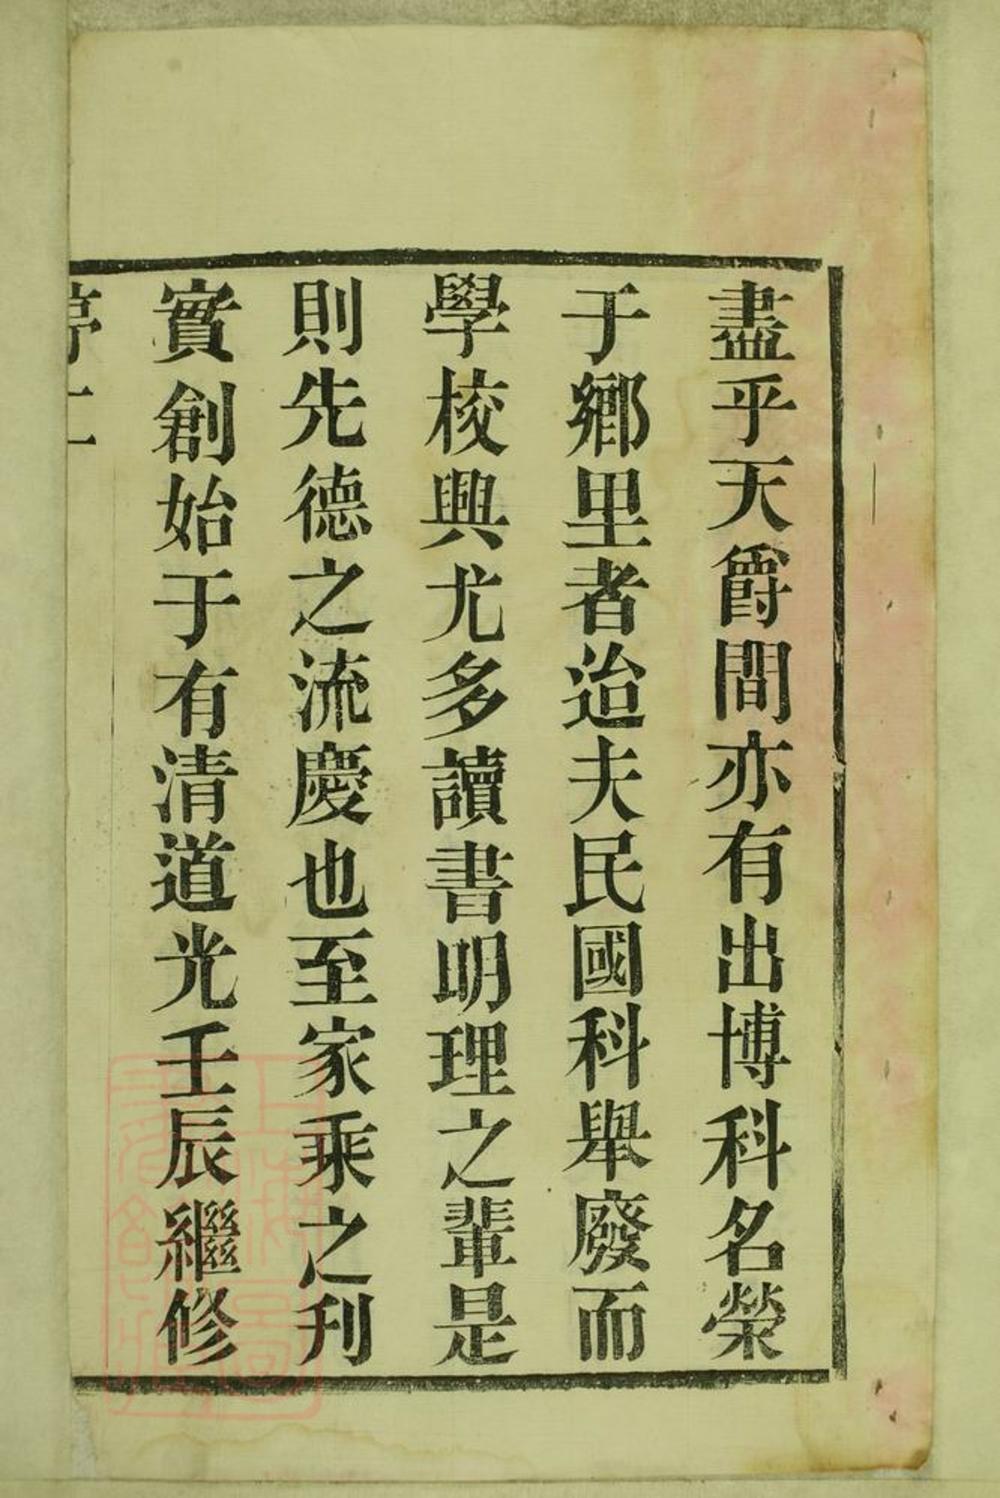 盡乎天爵間亦有出博科名榮
于鄉里者迨夫民國科舉廢而
學校興尤多讀書明理之輩是
則先德之流慶也至家乘之刋
實創始于有清道光壬辰繼修